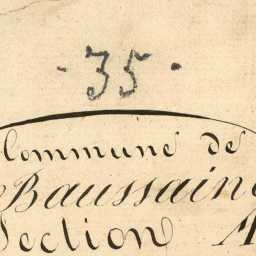 - 35 -
Commune de
Baussaine
Section A